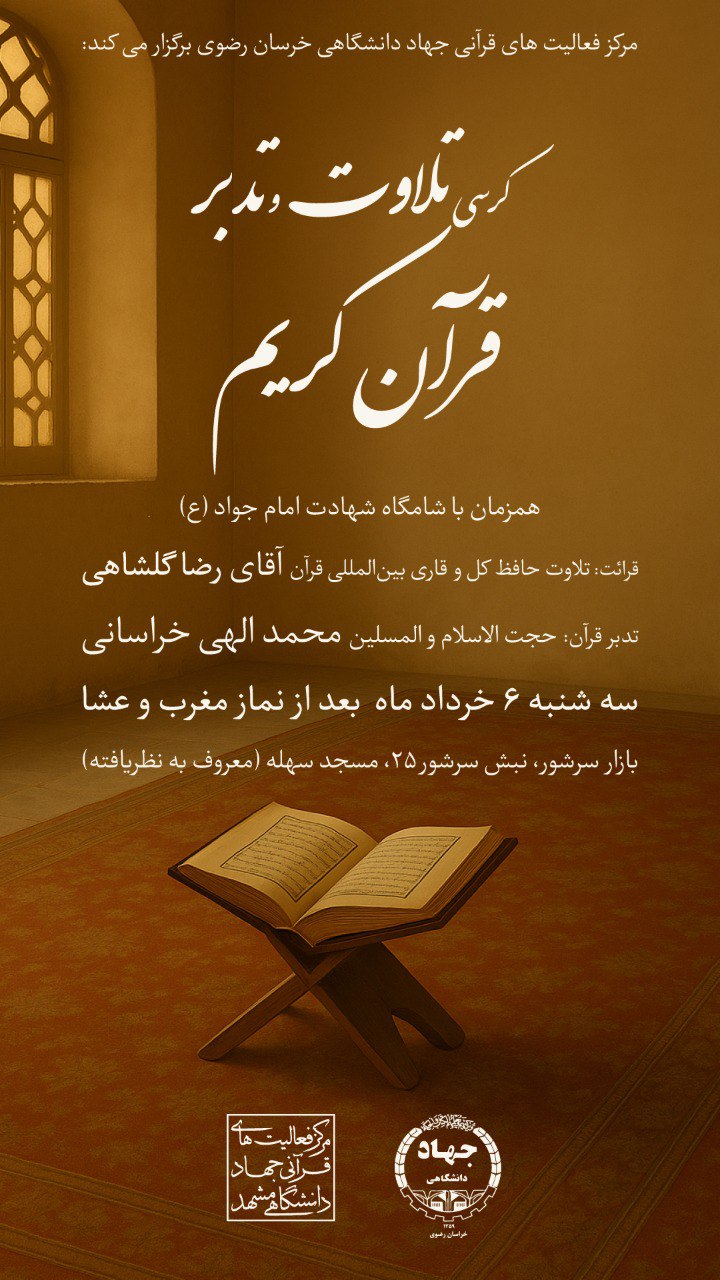 مرکز فعالیت های قرآنی جهاد دانشگاهی خرسان رضوی برگزار می کند:
کرسی تلاوت و تدبر
قرآن کریم
همزمان با شامگاه شهادت امام جواد (ع)
قرائت: تلاوت حافظ کل و قاری بین‌المللی قرآن آقای رضا گلشاهی
تدبر قرآن: حجت الاسلام و المسلین محمد الهی خراسانی
سه شنبه ۶ خرداد ماه بعد از نماز مغرب و عشا
بازار سرشور، نبش سرشور۲۵، مسجد سهله (معروف به نظریافته)
جهاد
دانشگاهی
۱۳۵۹
خراسان رضوی
مرکز فعالیت های
قرآنی جهاد
دانشگاهی مشهد